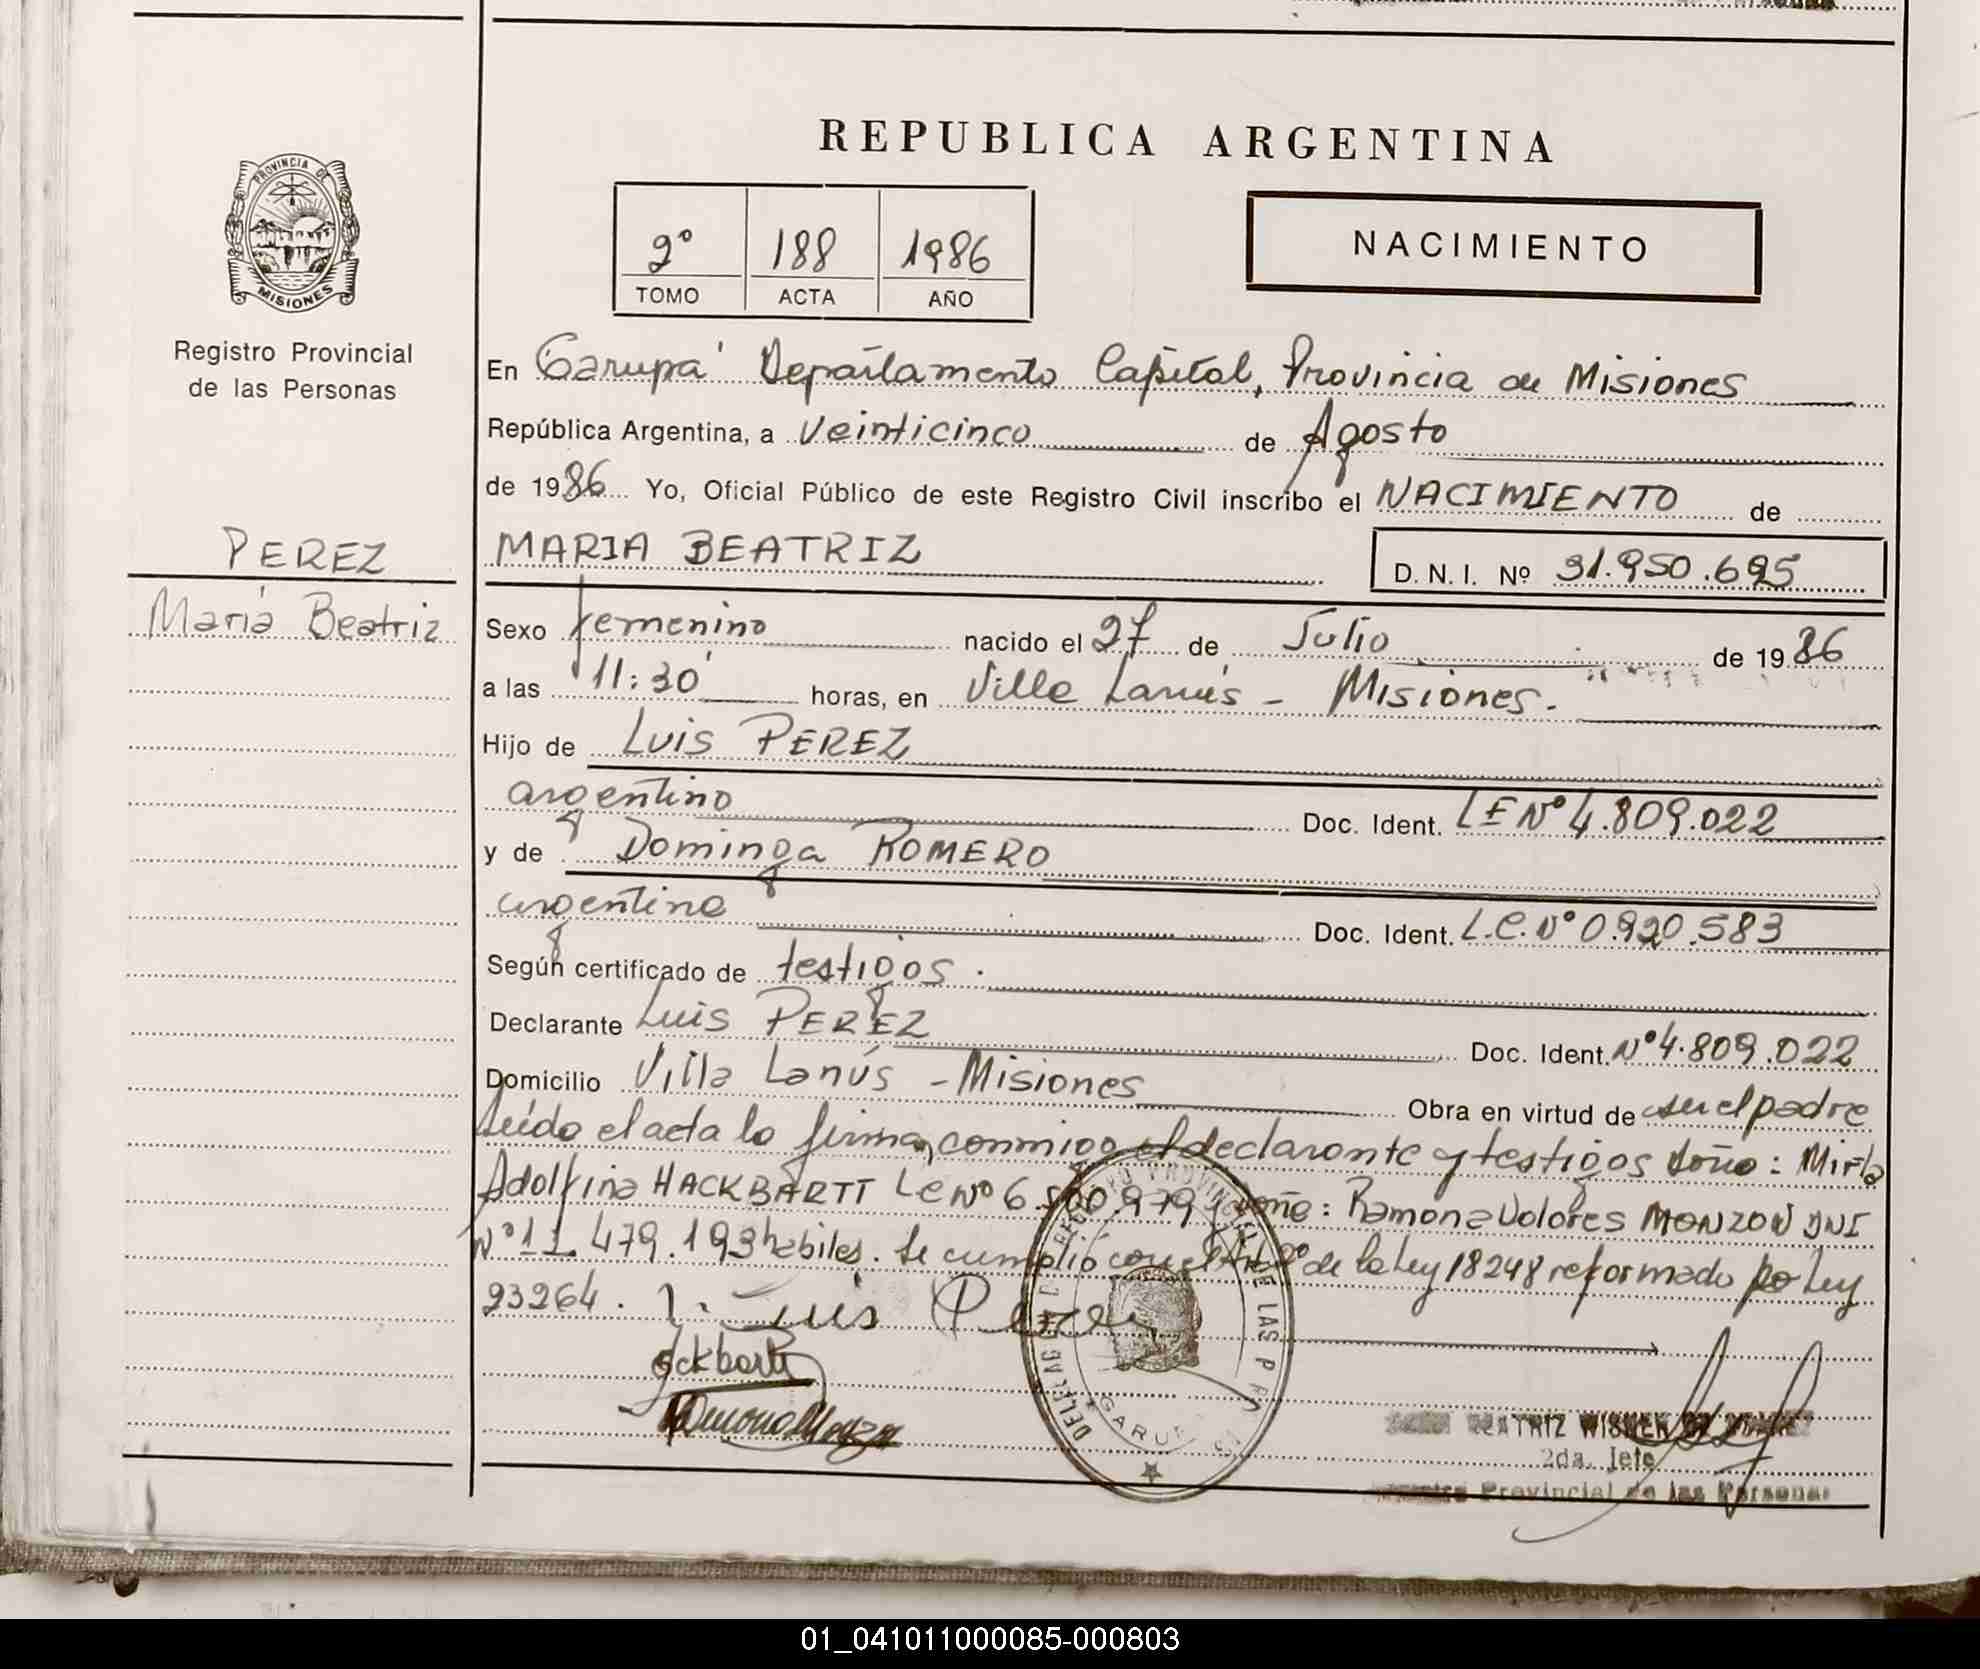 REPUBLICA ARGENTINA
PROVINCIA DE
MISIONES
Registro Provincial
de las Personas
2º 188 1986
TOMO ACTA AÑO
NACIMIENTO
En Garupá Departamento Capital, Provincia de Misiones
República Argentina, a Veinticinco de Agosto
de 1986 Yo, Oficial Público de este Registro Civil inscribo el NACIMIENTO de
PEREZ
María Beatriz
MARIA BEATRIZ
D. N. I. Nº 31.950.695
Sexo femenino nacido el 27 de Julio de 1986
a las 11:30 horas, en Villa Lanús - Misiones.
Hijo de Luis PEREZ
argentino Doc. Ident. LE Nº 4.809.022
y de Dominga ROMERO
argentina Doc. Ident. L.C. Nº 0.920.583
Según certificado de testigos.
Declarante Luis PEREZ Doc. Ident. Nº 4.809.022
Domicilio Villa Lanús - Misiones Obra en virtud de ser el padre
Leído el acta lo firman conmigo el declarante y testigos doña: Mirta
Adolfina HACKBARTT LC Nº 6.500.979 y doña: Ramona Dolores MONZON DNI
Nº 11.479.193 hábiles. Se cumplió con el Art. de la Ley 18248 reformado por Ley
23264. Luis Perez
Ramona Monzon
REGISTRO PROVINCIAL DE LAS
GARUPA
BEATRIZ WISNER DE
2da. Jefe
Registro Provincial de las Personas
01_041011000085-000803